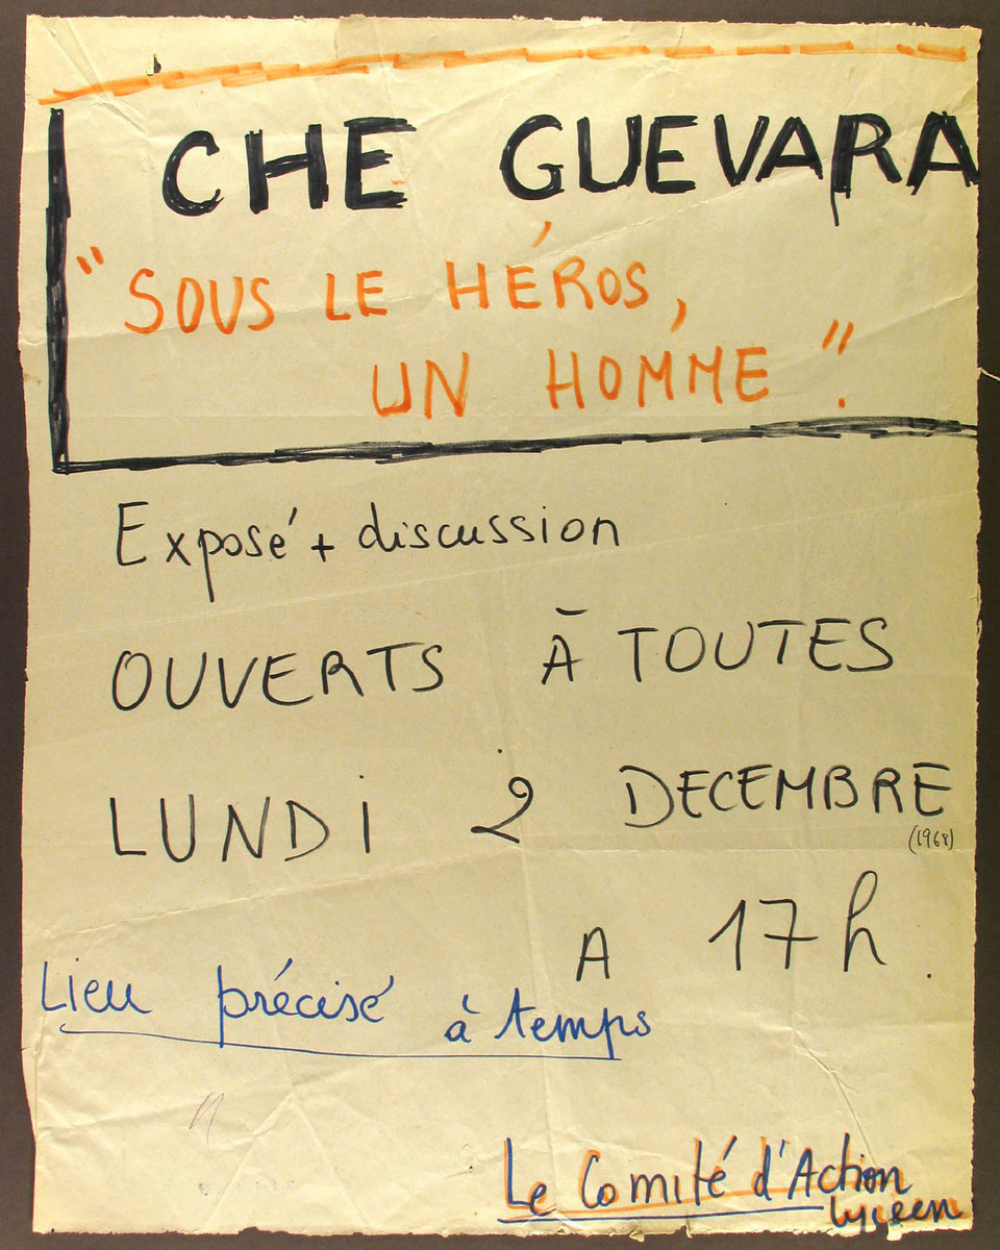 CHE GUEVARA
"SOUS LE HÉROS,
UN HOMME".
Exposé + discussion
OUVERTS À TOUTES
LUNDI 2 DECEMBRE
(1968)
A 17h.
Lieu précisé à temps
Le Comité d'Action
lycéen